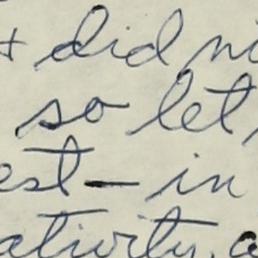 + did ni
so let
est — in
ativity, a